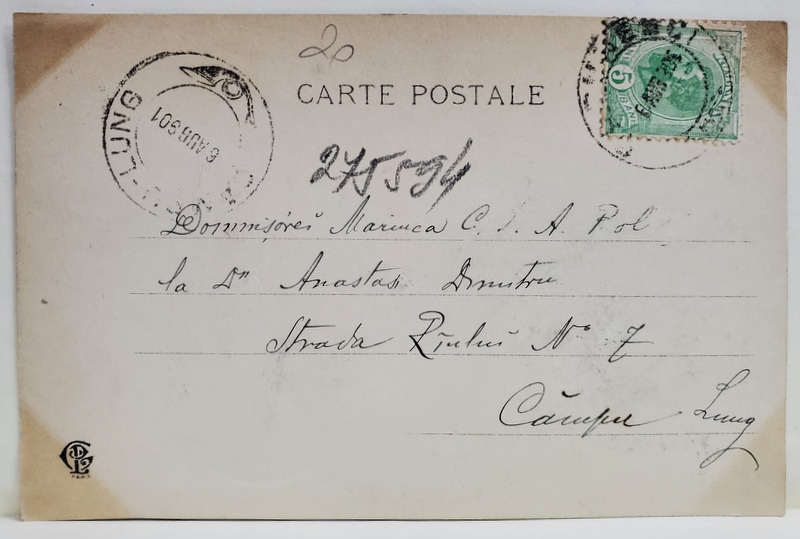 20
CARTE POSTALE
-LUNG
6 AUG 901
5
BANI
275594
Domnișórei Marinca C. I. A. Pol
la Dⁿ Anastas Dimitriu
Strada Rîului Nº 7
Câmpu Lung
PARIS